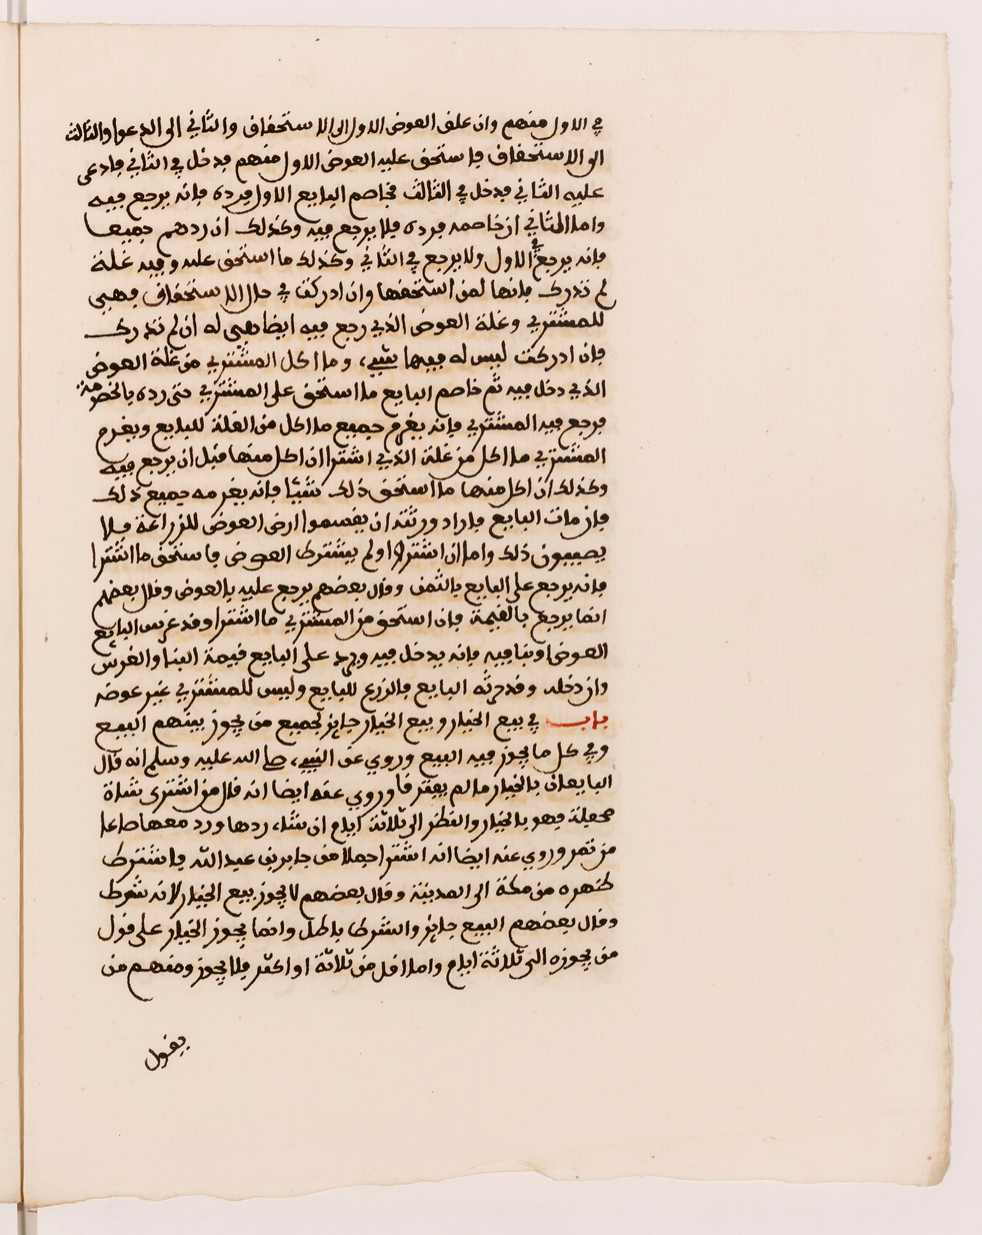 في الاول منهم وان علق العوض الاول الى الاستحقاق والثاني الى الدعوا والثالث
الى الاستحقاق فاستحق عليه العوض الاول منهم فدخل في الثاني فادعى
عليه الثاني فدخل في الثالث فخاصم البايع الاول فرده فانه يرجع فيه
واما الثاني ان خاصمه فرده فلا يرجع فيه وكذلك ان ردهم جميعا
فانه يرجع في الاول ولا يرجع في الثاني وكذلك ما استحق عليه وفيه غلة
لم تدرك فانها لمن استحقها وان ادركت في حال الاستحقاق فهي
للمشتري وغلة العوض الذي رجع فيه ايضا هي له ان لم تدرك
فان ادركت ليس له فيها شيء، وما اكل المشتري من غلة العوض
الذي دخل فيه ثم خاصم البايع ما استحق على المشتري حتى رده بالخصومة
فرجع فيه المشتري فانه يغرم جميع ما اكل من الغلة للبايع ويغرم
المشتري ما اكل من غلة الذي اشترا ان اكل منها قبل ان يرجع فيه
وكذلك ان اكل منها ما استحق ذلك شيئا فانه يغرمه جميع ذلك
فان مات البايع فاراد ورثته ان يقسموا ارض العوض للزراعة فلا
يصيبون ذلك واما ان اشترا ولم يشترك العوض فاستحق ما اشترا
فانه يرجع على البايع بالثمن وقال بعضهم يرجع عليه بالعوض وقال بعضهم
انما يرجع بالقيمة فان استحق من المشتري ما اشترا وقد غرس البايع
العوض او بنا فيه فانه يدخل فيه ويرد على البايع قيمة البنا والغرس
وان دخله وقد حرثه البايع فالزرع للبايع وليس للمشتري غير عوضه
باب في بيع الخيار وبيع الخيار جايز لجميع من يجوز بينهم البيع
وفي كل ما يجوز فيه البيع وروي عن النبيء، صلى الله عليه وسلم انه قال
البايعان بالخيار ما لم يفترقا وروي عنه ايضا انه قال من اشترى شاة
محفلة فهو بالخيار والنظر الى ثلاثة ايام ان شاء، ردها ورد معها صاعا
من تمر وروي عنه ايضا انه اشترا جملا من جابر بن عبد الله فاشترط
ظهره من مكة الى المدينة وقال بعضهم لا يجوز بيع الخيار لانه شرط
وقال بعضهم البيع جايز والشرط باطل وانما يجوز الخيار على قول
من يجوزه الى ثلاثة ايام واما اقل من ثلاثة او اكثر فلا يجوز ومنهم من
يقول